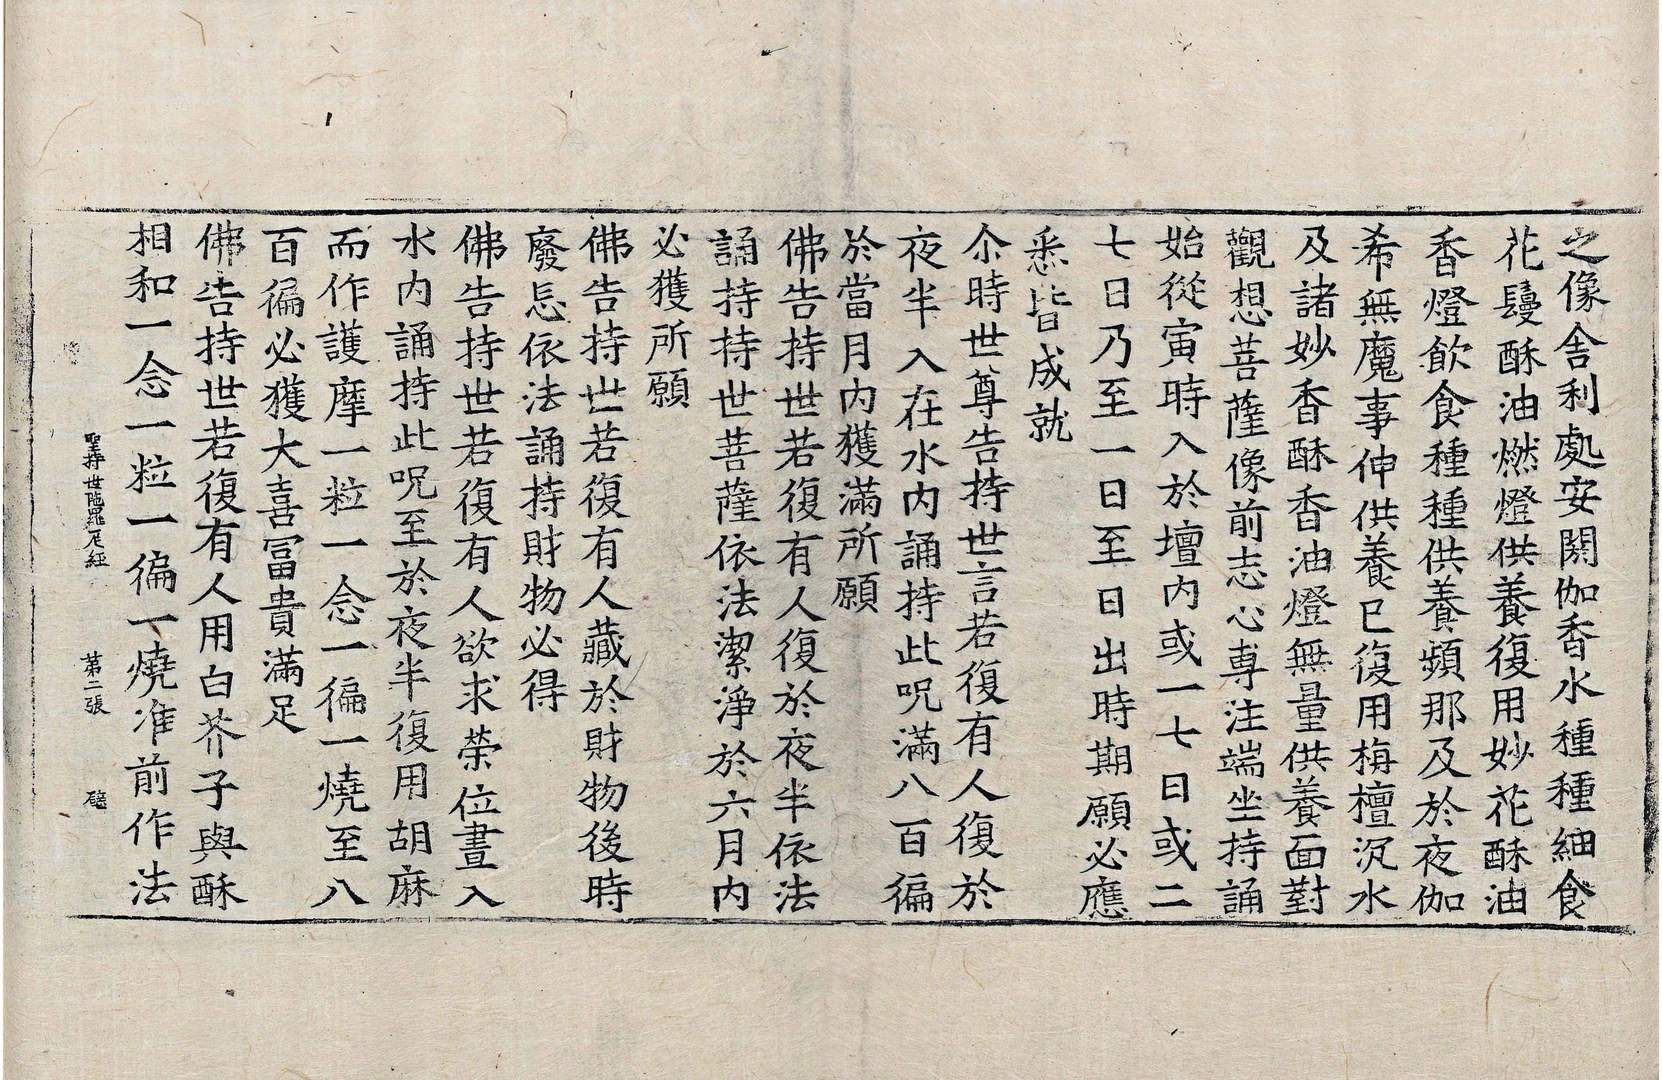 之像舍利處安閼伽香水種種細食
花鬘酥油燃燈供養復用妙花酥油
香燈飲食種種供養頻那及於夜伽
希無魔事伸供養已復用栴檀沉水
及諸妙香酥香油燈無量供養面對
觀想菩薩像前志心専注端坐持誦
始從寅時入於壇内或一七日或二
七日乃至一日至日出時期願必應
悉皆成就
尒時世尊告持世言若復有人復於
夜半入在水内誦持此呪滿八百徧
於當月内獲滿所願
佛告持世若復有人復於夜半依法
誦持持世菩薩依法潔淨於六月内
必獲所願
佛告持世若復有人藏於財物後時
廢忘依法誦持財物必得
佛告持世若復有人欲求榮位晝入
水内誦持此呪至於夜半復用胡麻
而作護摩一粒一念一徧一燒至八
百徧必獲大喜冨貴滿足
佛告持世若復有人用白芥子與酥
相和一念一粒一徧一燒准前作法
聖持世陁羅尼經 第二張